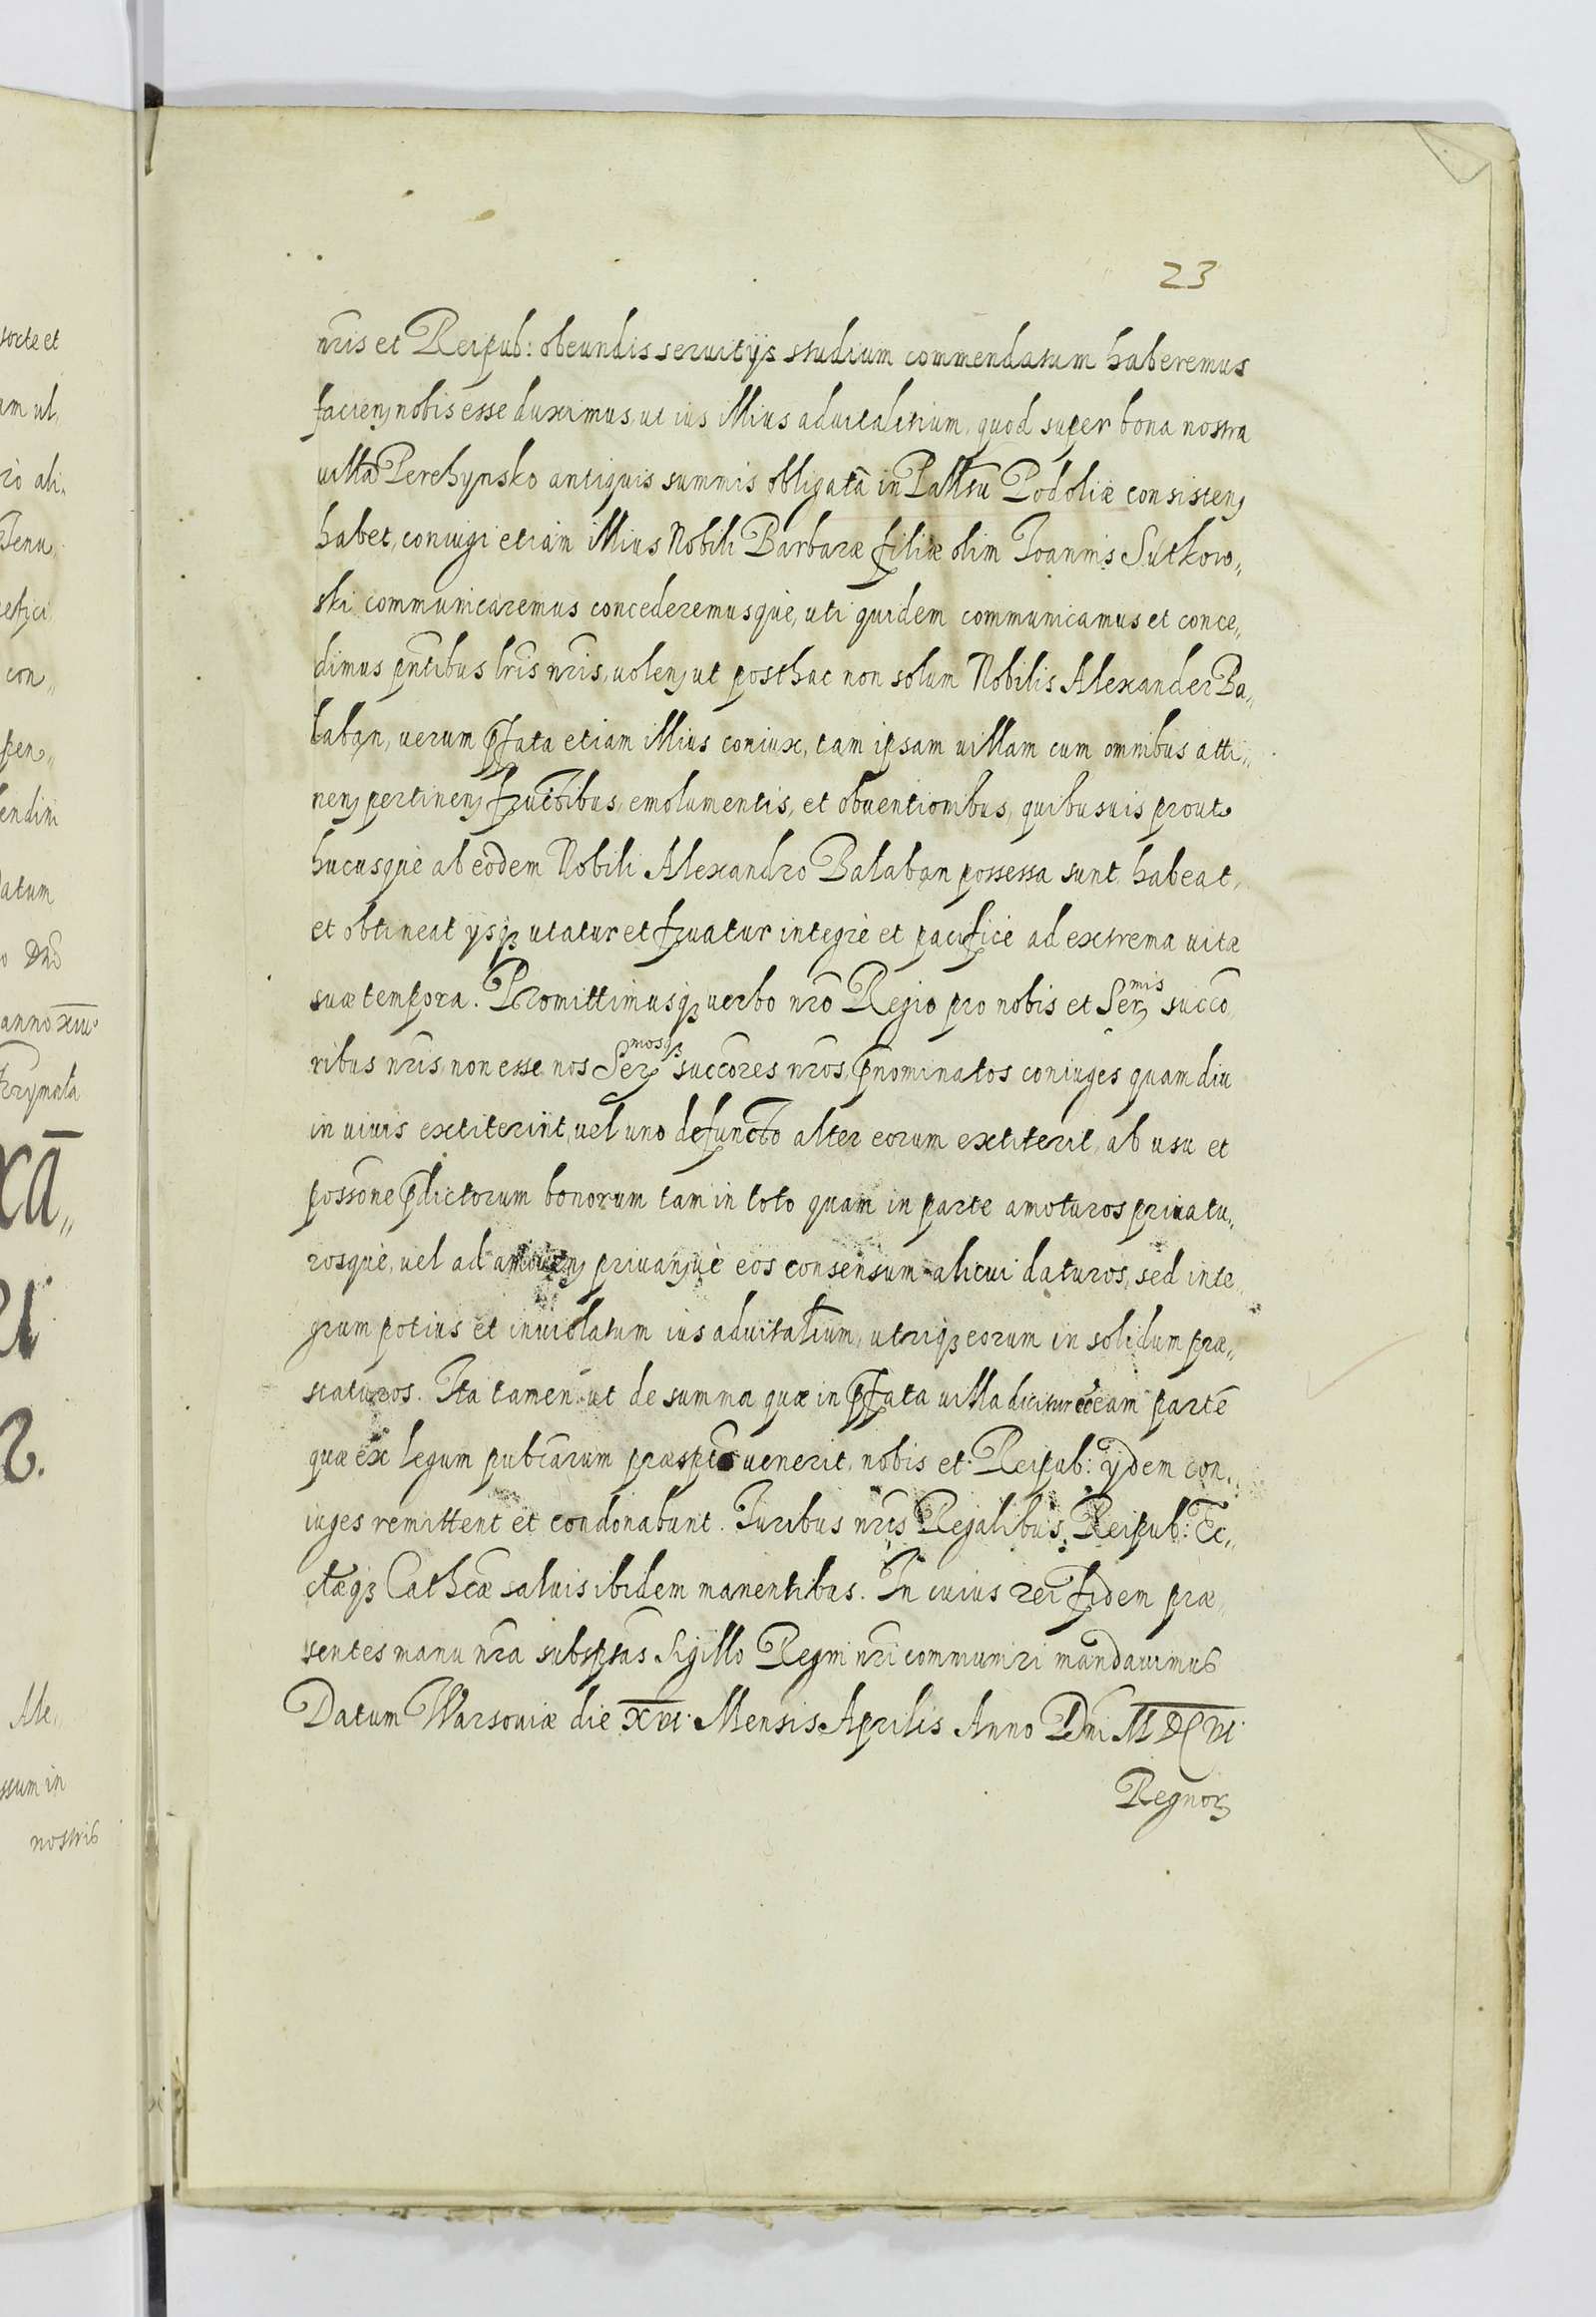 23
nr̃is et Reipub: obeundis seruitijs studium commendatum haberemus
facien nobis esse duximus, ut ius illius aduitalitium, quod super bona nostra
uilla Perehynsko antiquis summis obligatâ in Pałłtu Podoliæ consisten
habet, coniugi etiam illius Nobili Barbaræ filiæ olim Joannis Sutkow„
ski communicaremus concederemusque, uti quidem communicamus et conce„
dimus pñtibus lr̃is nr̃is, uolen ut posthac non solum Nobilis Alexander Ba„
laban, uerum pfata etiam illius coniux, tam ipsam uillam cum omnibus atti„
nen pertinen fructibus, emolumentis, et obuentionibus, quibusuis prout
hucusque ab eodem Nobili Alexandro Balaban possessa sunt habeat,
et obtineat ysq utatur et fruatur integrè et pacificè ad extrema uitæ
suæ tempora. Promittimusq uerbo nr̃o Regio pro nobis et Ser mis succo
ribus nr̃is, non esse nos Ser mosq succõres nr̃os, pnominatos coniuges quam diu
in uiuis extiterint, uel uno defuncto alter eorum extiterit, ab usu et
possõne pdictorum bonorum tam in toto quam in parte amoturos priuatu„
rosque, uel ad amouen priuanue eos consensum alicui daturos, sed inte„
grum potius et inuiolatum ius aduitalium, utriq eorum in solidum præ„
staturos. Ita tamen ut de summa quæ in pfata uilla dicitur eẽ eam partẽ
quæ ex legum pubcarum præspto uenerit, nobis et Reipub: ydem con„
iuges remittent et condonabunt. Juribus nr̃is Regalibus, Reipub: Ec„
clæq Cathcæ saluis ibidem manentibus. In cuius rei fidem præ„
sentes manu nr̃a subspsas sigillo Regni nr̃i communiri mandauimus
Datum Warsouiæ die XVI Mensis Aprilis Anno Dni M DC VI
Regnor